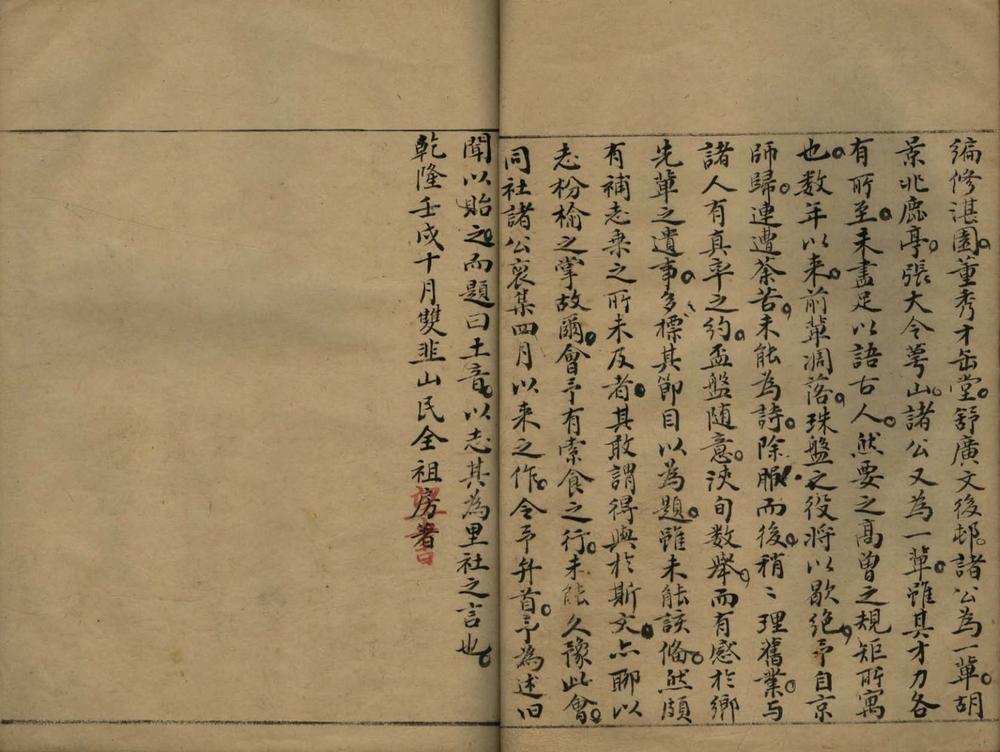 編修湛園董秀才缶堂舒廣文後邨諸公為一輩胡
京兆鹿亭張大令萼山諸公又為一輩雖其才力各
有所至未盡足以語古人然要之高曾之規矩所寓
也数年以来前輩凋落珠盤之役將以歇絶予自京
師歸連遭荼苦未能為詩除服而後稍〻理舊業与
諸人有真率之約盃盤随意浹旬数舉而有感於鄉
先輩之遺事多標其節目以為題雖未能該偹然頗
有補志乗之所未及者其敢謂得與於斯文亦聊以
志枌榆之掌故爾會予有索食之行未能久豫此會
同社諸公裒集四月以来之作令予弁首予為述旧
聞以貽之而題曰土音以志其為里社之言也
乾隆壬戌十月雙韭山民全祖房著
望